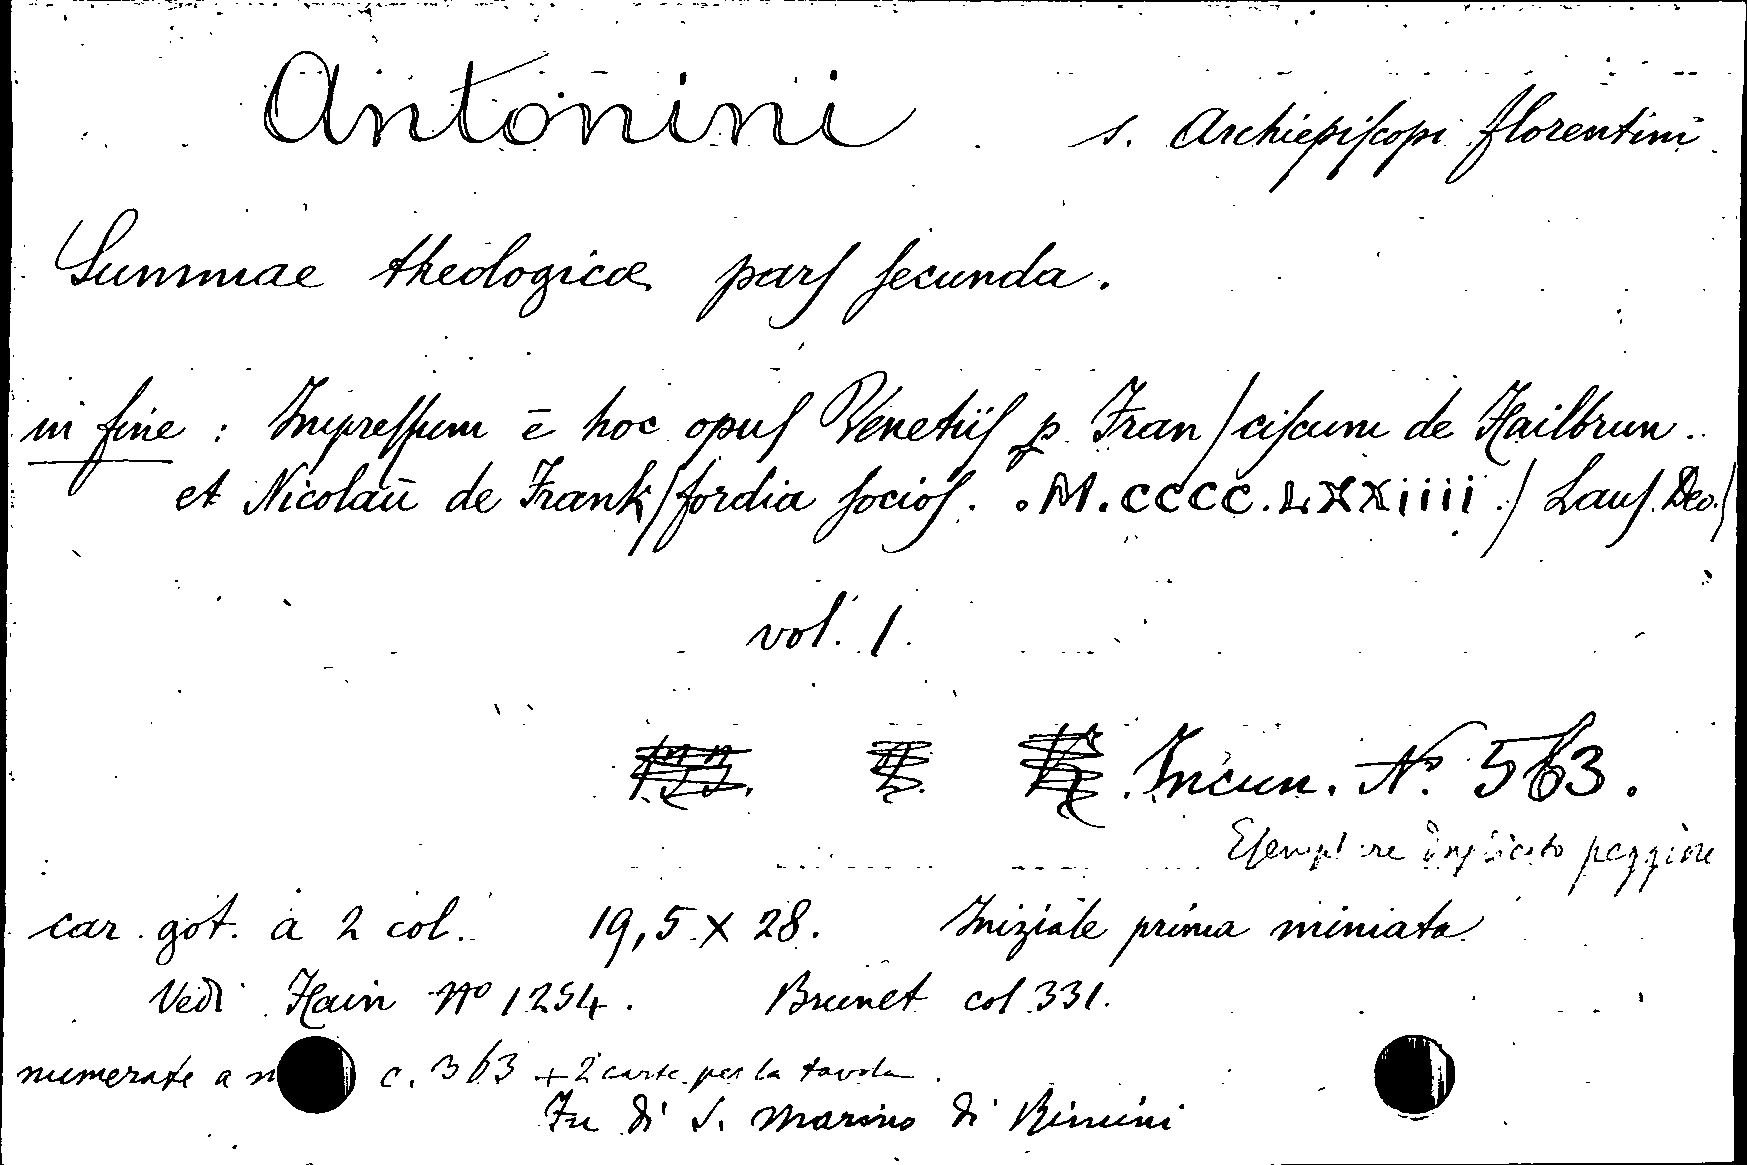 Antonini s. Archiepiſcopi florentini
Summae theologicæ parſ ſecunda.
in fine : Impreſſum ē hoc opuſ Venetiiſ p. Fran/ciſcum de Hailbrun.
et Nicolaū de Frank/fordia ſocioſ. .M.CCCC.LXXiiii./ Lauſ. Deo./
vol. 1.
Incun. Nº 563.
Esemplare duplicato peggiore
car. got. a 2 col. 19,5 X 28. Iniziale prima miniata
Vedi Hain Nº 1254. Brunet col 331.
numerate a c. 363 + 2 carte per la tavola.
Fu di S. Marino di Rimini